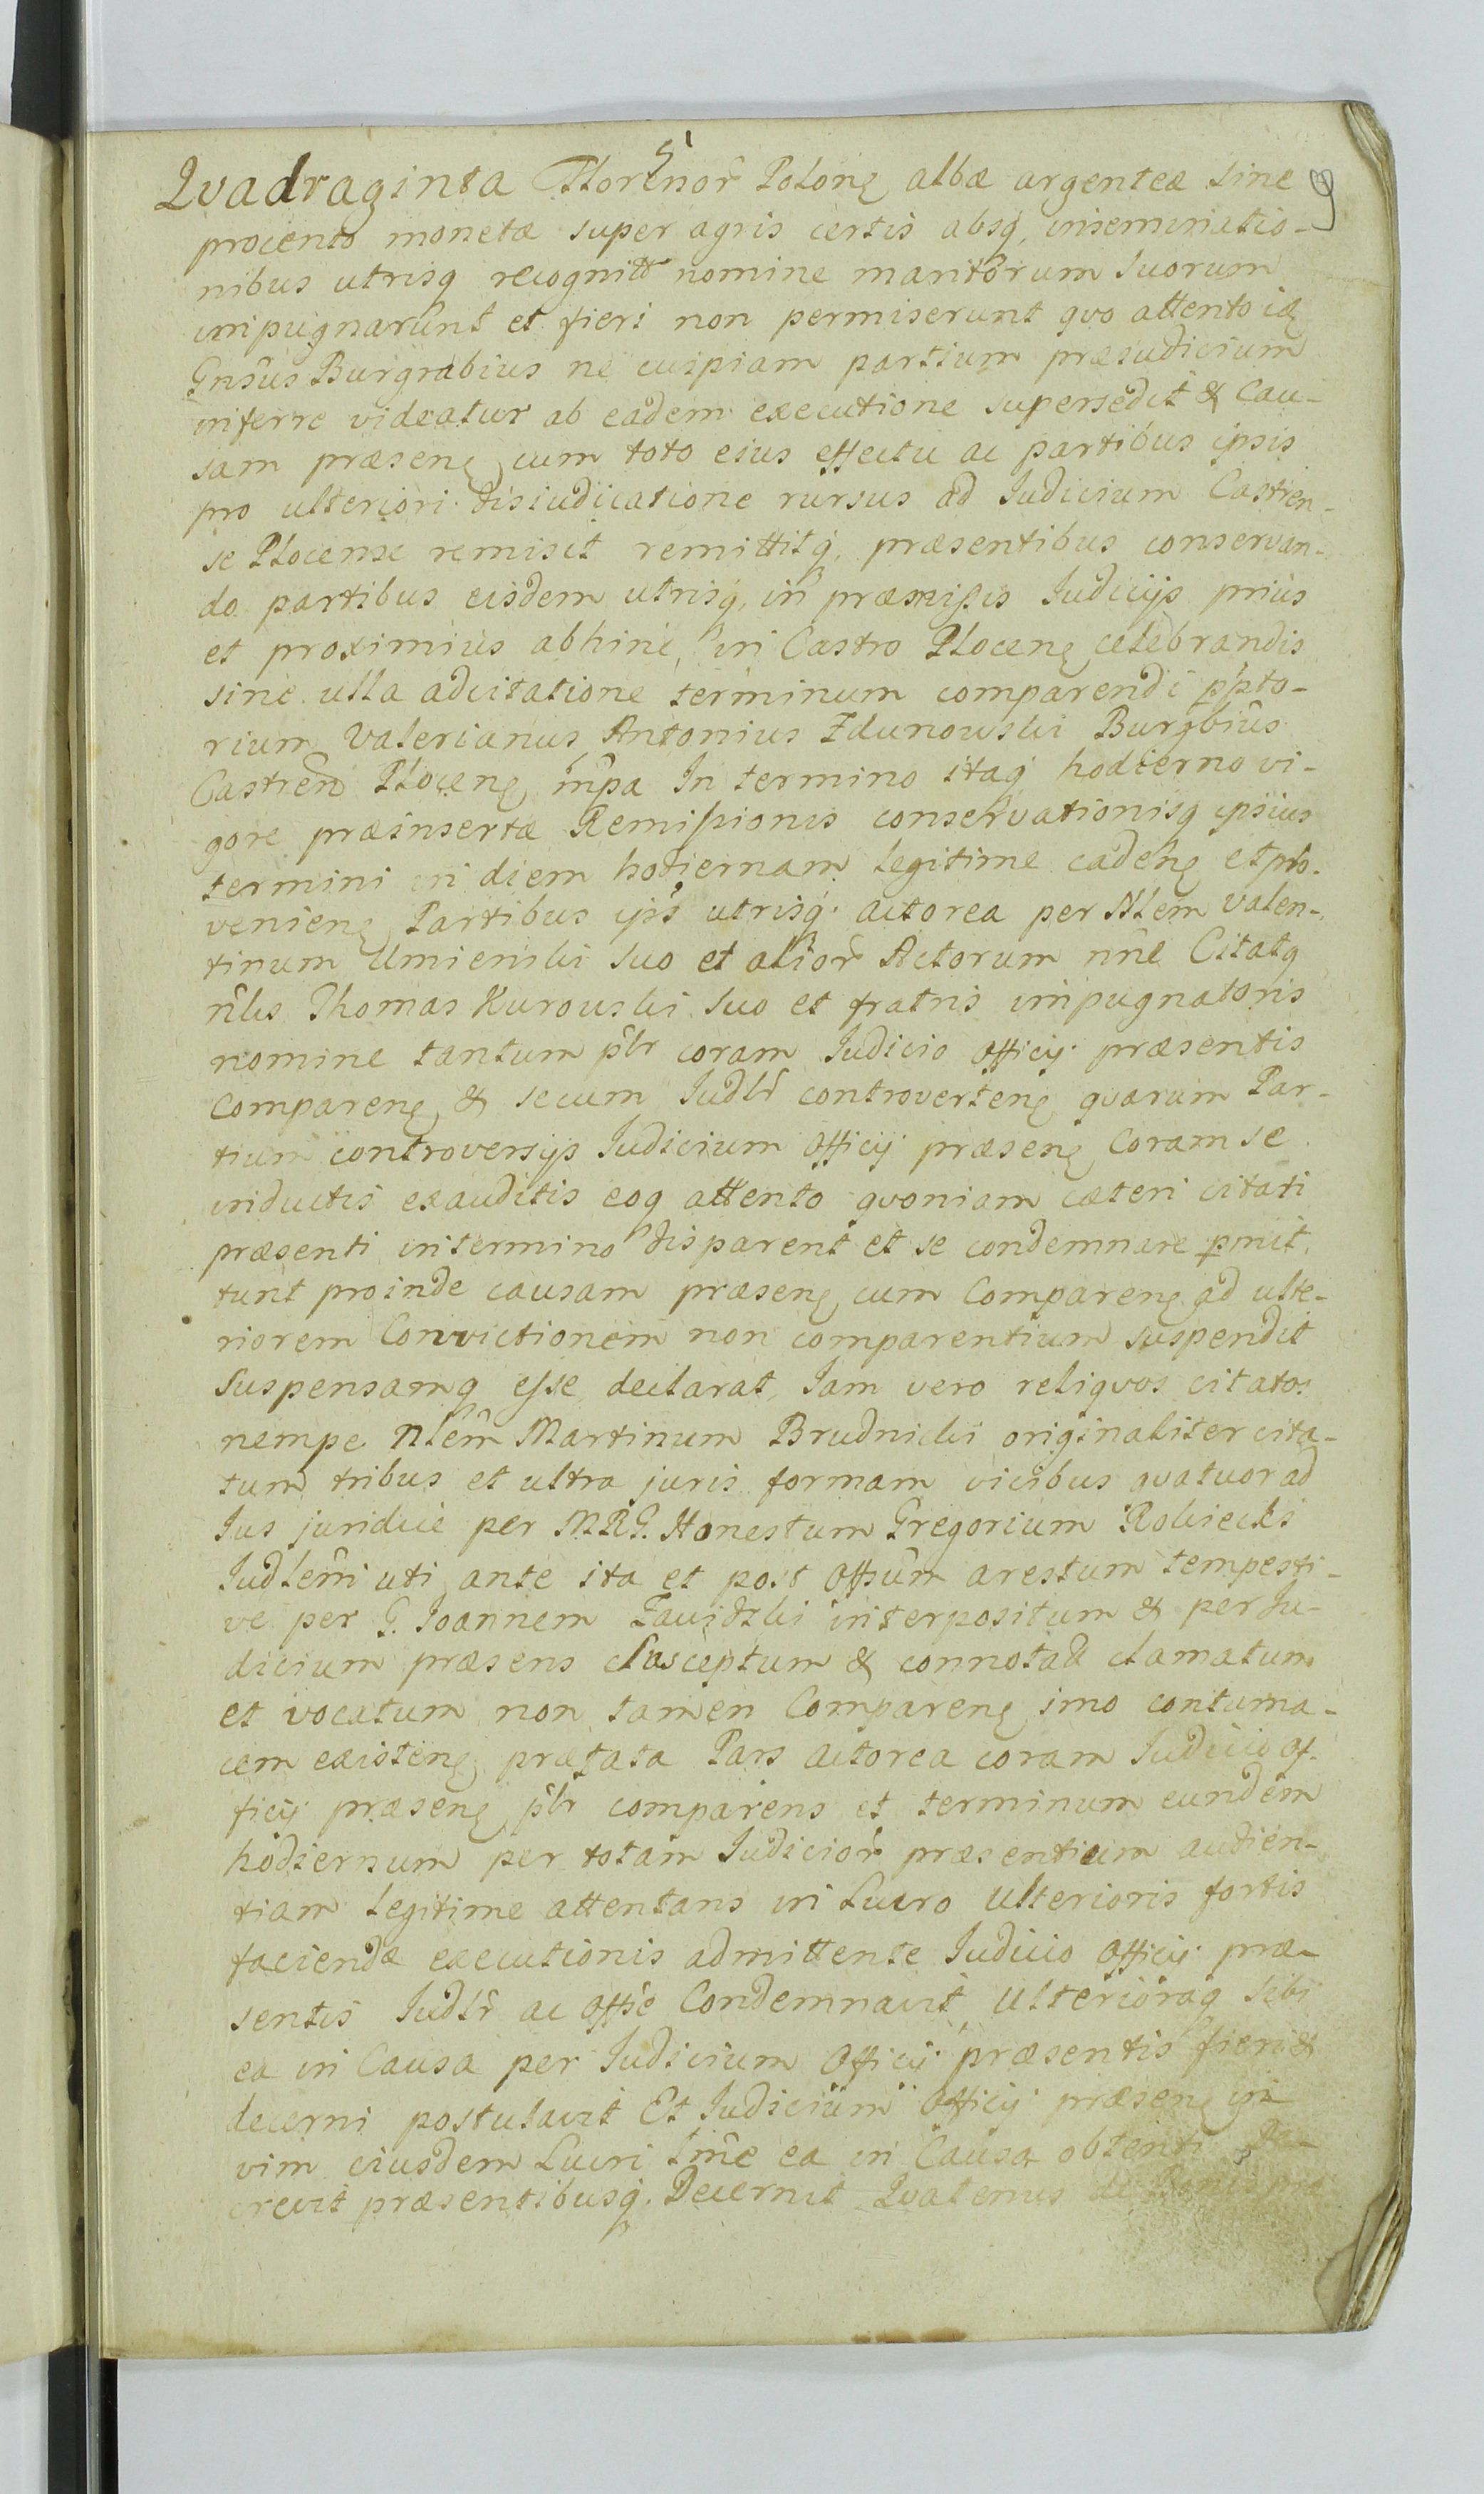 5
9
Quadraginta Florenor Polong albæ argenteæ sine
procento monetæ super agris certis absq, inseminatio-
nibus utrisq recognitt nomine maritorum suorum
impugnarunt et fieri non permiserunt quo attento id
Gnsus Burgrabius ne cuipiam partium præiudicium
inferre videatur ab eadem executione supersedit & Cau-
sam præseng cum toto eius effectu ac partibus ipsis
pro ulteriori disiudicatione rursus ad Iudicium Castren-
se Plocense remisit remittitq, præsentibus conservan-
do partibus eisdem utrisq, in præmissis Iudicijs prius
et proximius abhinc, in Castro Ploceng celebrandis
sine ulla adcitatione terminum comparendi ppto-
rium Valerianus Antonius Zdunowski Burgbius
Castren Ploceng mpa In termino itaq hodierno vi-
gore præinsertæ Remissionis conservationisq ipsius
termini in diem hodiernam legitime cadeng et pro-
venieng Partibus ips utrisq. actorea per Nlem Valen-
tinum Umienski suo et alior Actorum nne Citatq
nlis Thomas Kurowski suo et fratris impugnatoris
nomine tantum plr coram Iudicio officij præsentis
Compareng & secum Iudlr controverteng quarum Par-
tium controversijs Iudicium officij præseng Coram se
inductis exauditis eoq attento quoniam cæteri citati
præsenti in termino disparent et se condemnare pmit-
tunt proinde causam præseng cum Compareng ad ulte-
riorem Convictionem non comparentium suspendit
suspensamq esse declarat, Iam vero reliquos citatos
nempe Nlem Martinum Brudnicki originaliter cita-
tum tribus et ultra juris formam vicibus quatuor ad
Ius juridice per MRG. Honestum Gregorium Robiecki
Iudlem uti ante ita et post Offsum arestum tempesti-
ve per G. Ioannem Zawidzki interpositum & per Iu-
dicium præsens susceptum & connotatt clamatum
et vocatum non tamen Compareng imo contuma-
cem existeng prætata Pars actorea coram Iudicio of-
ficij præseng plr comparens et terminum eundem
hodiernum per totam Iudicior præsentium audien-
tiam legitime attentans in Lucro Ulterioris fortis
faciendæ executionis admittente Iudicio officij præ-
sentis Iudlr ac offse Condemnavit Ulterioraq sibi
ea in Causa per Iudicium officij præsentis fieri &
decerni postulavit Et Iudicium officij præseng in
vim eiusdem Lucri tme ea in Causa obtenti De-
crevit præsentibusq. Decernit Quatenus de Bonis